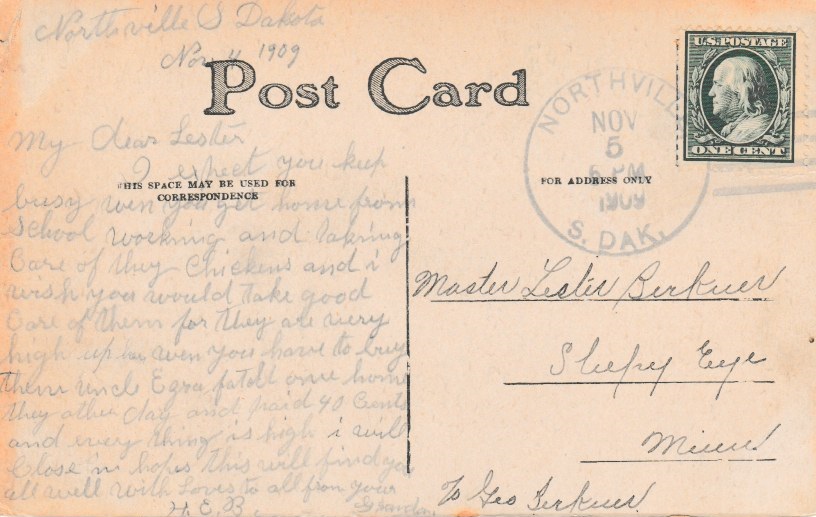 Northville S Dakota
Nov 4 1909
Post Card
My dear Lester
I expect you keep
busy wen you get home from
School working and takeing
Care of they Chickens and i
wish you would take good
Care of them for they are very
high up hear wen you have to buy
them uncle Ezra fetcht one home
they other day and paid 40 Cents
and every thing is high i will
Close in hopes this will find you
all well with Loves to all from your
H. E. B. Grandpa
THIS SPACE MAY BE USED FOR
CORRESPONDENCE
FOR ADDRESS ONLY
U.S. POSTAGE
ONE CENT
NORTHVILLE
NOV
5
PM
1909
S. DAK.
Master Lester Berkner
Sleepy Eye
Minn
℅ Geo Berkner